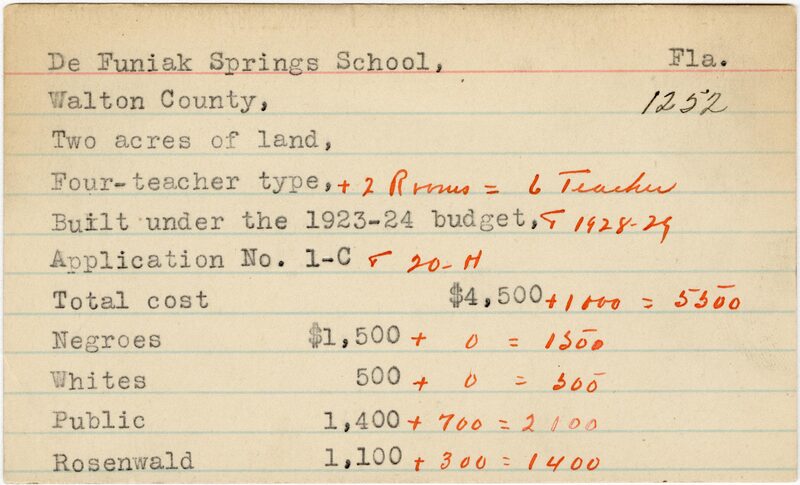 De Funiak Springs School, Fla.
Walton County, 1252
Two acres of land,
Four-teacher type, + 2 Rooms = 6 Teacher
Built under the 1923-24 budget, & 1928-29
Application No. 1-C & 20-H
Total cost $4,500 + 1000 = 5500
Negroes $1,500 + 0 = 1500
Whites 500 + 0 = 500
Public 1,400 + 700 = 2100
Rosenwald 1,100 + 300 = 1400